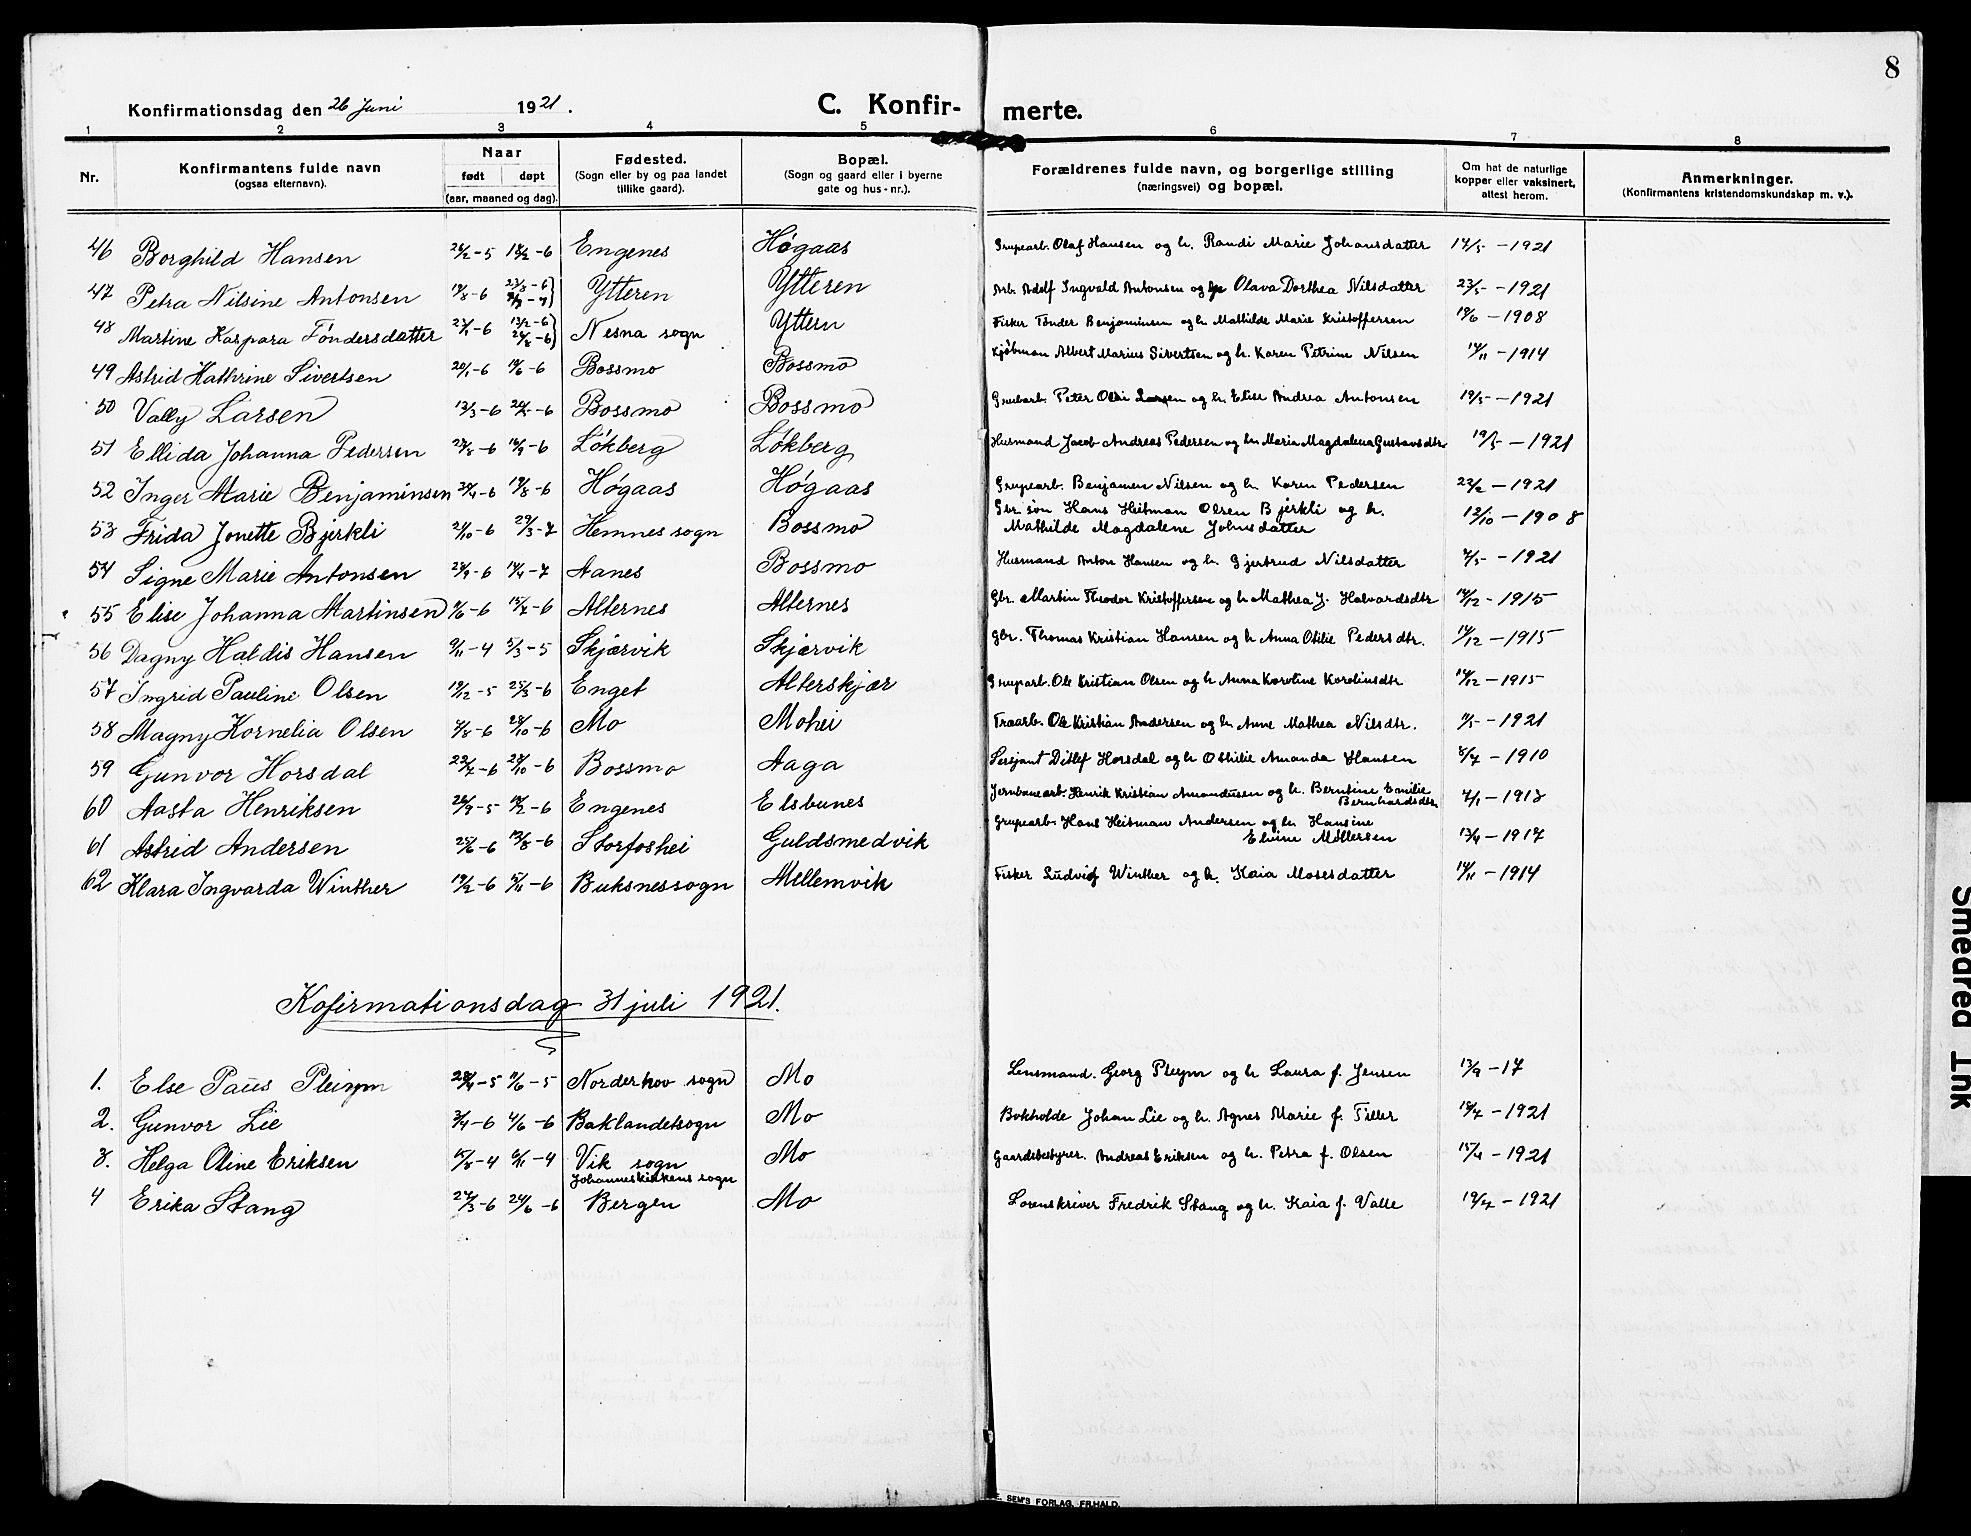 8
Konfirmationsdag den 26 Juni 1921. C. Konfir- merte.
1 2 3 4 5 6 7 8
Nr. Konfirmantens fulde navn (ogsaa efternavn). Naar født døpt (aar, maaned og dag). Fødested. (Sogn eller by og paa landet tillike gaard). Bopæl. (Sogn og gaard eller i byerne gate og hus-nr.). Forældrenes fulde navn, og borgerlige stilling (næringsvei) og bopæl. Om hat de naturlige kopper eller vaksinert, attest herom. Anmerkninger. (Konfirmantens kristendomskundskap m. v.).
46 Borghild Hansen Engenes Høgaas Grupearb. Olaf Hansen og h. Randi Marie Johansdatter 14/5 - 1921
47 Petra Nilsine Antonsen 19/8-6 Ytteren Ytteren Arb. Adolf Ingvald Antonsen og Olava Dorthea Nilsdatter 23/5 - 1921
48 Martine Kaspara Tøndersdatter 13/2-6 Nesna sogn Yttern Fisker Tønder Benjaminsen og h. Mathilde Marie Kristoffersen 19/6 - 1908
49 Astrid Kathrine Sivertsen 20/1-6 Bossmo Bossmo Kjøbman Albert Marius Sivertsen og h. Karen Petrine Nilsen 14/11 - 1914
50 Vally Larsen 13/3-6 Bossmo Bossmo Grubarb. Peter Olai Larsen og h. Elise Andrea Antonsen 19/5 - 1921
51 Ellida Johanna Pedersen Løkberg Løkberg Husmand Jacob Andreas Pedersen og h. Maria Magdalena Gustavsdtr 19/5 - 1921
52 Inger Marie Benjaminsen 19/8-6 Høgaas Høgaas Grupearb. Benjamen Nilsen og h. Karen Pedersen 23/2 - 1921
53 Frida Jonette Bjerkli 29/3-7 Hemnes sogn Bossmo Gbr. søn Hans Heitman Olsen Bjerkli og h. Mathilde Magdalene Johnsdatter 12/10 - 1908
54 Signe Marie Antonsen 14/4-7 Aanes Bossmo Husmand Anton Hansen og h. Gjertrud Nilsdatter - 1921
55 Elise Johanna Martinsen 15/7-6 Alternes Alternes Gbr. Martin Theodor Kristoffersen og h. Mathea J. Halvardsdtr 14/12 - 1915
56 Dagny Haldis Hansen 9/11-4 5/3-5 Skjærvik Skjærvik Gbr. Thomas Kristian Hansen og h. Anna Otilie Pedersdtr. 14/12 - 1915
57 Ingrid Pauline Olsen 19/12-5 25/3-6 Enget Alterskjær Gruparb. Ole Kristian Olsen og h. Anna Karoline Karoliusdtr 14/12 - 1915
58 Magny Kornelia Olsen 28/10-6 Mo Mohei Traarb. Ole Kristian Andersen og h. Anne Mathea Nilsdtr. - 1921
59 Gunvor Horsdal 23/7-6 28/10-6 Bossmo Aaga Serjant Ditlef Horsdal og h. Othilie Amanda Hansen 8/7 - 1910
60 Aasta Henriksen Engenes Elsbunes Jernbanearb. Henrik Kristian Amandussen og h. Berntine Emilie Bernhardsdtr - 1918
61 Astrid Andersen 25/6-6 Storfoshei Guldsmedvik Grupearb. Hans Heitman Andersen og h. Hansine Elvine Møllersen 13/4 - 1917
62 Klara Ingvarda Winther 19/2-6 5/11-6 Buksnes sogn Mellemvik Fisker Ludvig Winther og h. Kaia Mosesdatter 14/11 - 1914
Kofirmationsdag 31 juli 1921.
1. Else Paus Pleym 28/4-5 11/6-5 Norderhov sogn Mo Lensmand. Georg Pleym og h. Laura f. Jensen 13/9 - 17
2. Gunvor Lie 3/4-6 4/6-6 Baklandetsogn Mo Bokholde Johan Lie og h. Agnes Marie f. Tiller 18/7 - 1921
3. Helga Oline Eriksen 15/8-4 6/11-4 Vik sogn Mo Gaardsbestyrer. Andreas Eriksen og h. Petra f. Olsen 15/4 - 1921
4 Erika Stang 27/3-6 24/6-6 Johanneskirkens sogn Bergen Mo Lorenskriver Fredrik Stang og h. Kaia f. Valle 19/7 - 1921
SEM'S FORLAG, FR.HALD
Smeared Ink